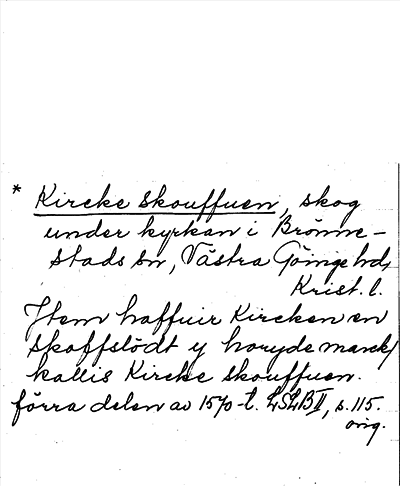 * Kircke skouffuen, skog
under kyrkan i Brönne-
stads sn, Västra Göinge hd,
Krist. l.
Item haffuir Kircken en
skoffslödt y horyde marck/
kallis Kircke skouffuen.
förra delen av 1570-t. LSLB II, s. 115.
orig.